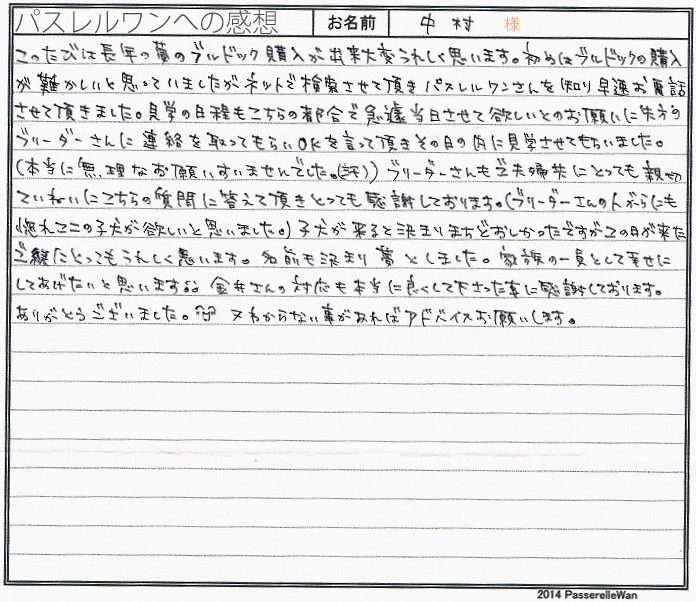 パスレルワンへの感想 お名前 中村 様
このたびは長年の夢のブルドック購入が出来大変うれしく思います。初めはブルドックの購入
が難かしいと思っていましたがネットで検索させて頂きパスレルワンさんを知り早速お電話
させて頂きました。見学の日程もこちらの都合で急遽当日させて欲しいとのお願いに先方の
ブリーダーさんに連絡を取ってもらいOKを言って頂きその日の内に見学させてもらいました。
(本当に無理なお願いすいませんでした。) ブリーダーさんもご夫婦共にとっても親切
ていねいにこちらの質問に答えて頂きとっても感謝しております。(ブリーダーさんの人がらにも
惚れてこの子犬が欲しいと思いました。) 子犬が来ると決まりまちどおしかったですがこの日が来た
ご縁にとってもうれしく思います。名前も決まり 夢 としました。家族の一員として幸せに
してあげたいと思います 金井さんの対応も本当に良くして下さった事に感謝しております。
ありがとうございました。又わからない事があればアドバイスお願いします。
2014 PasserelleWan